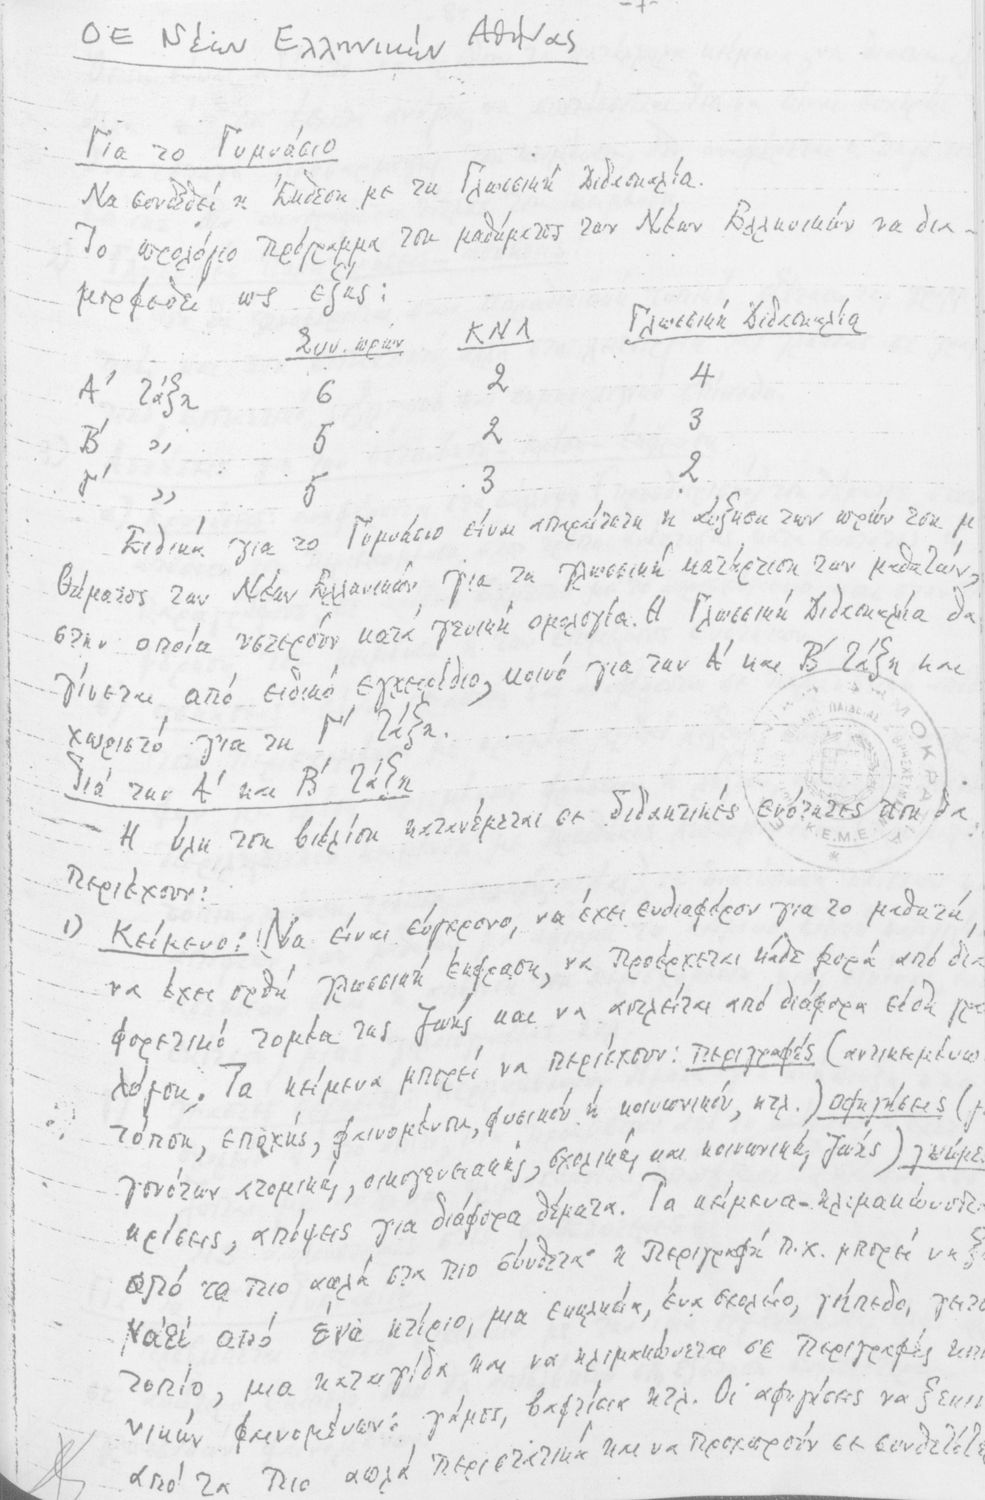 -1-
ΟΕ Νέων Ελληνικών Αθήνας
Για το Γυμνάσιο
Να συνδεθεί η Έκθεση με τη Γλωσσική Διδασκαλία.
Το ωρολόγιο πρόγραμμα του μαθήματος των Νέων Ελληνικών να δια-
μορφωθεί ως εξής:
Συν. ωρών ΚΝΛ Γλωσσική Διδασκαλία
Α΄ τάξη 6 2 4
Β΄ ,, 5 2 3
Γ΄ ,, 5 3 2
Ειδικά για το Γυμνάσιο είναι απαραίτητη η αύξηση των ωρών του μ
θήματος των Νέων Ελληνικών για τη γλωσσική κατάρτιση των μαθητών,
στην οποία υστερούν κατά γενική ομολογία. Η Γλωσσική Διδασκαλία θα
γίνεται από ειδικό εγχειρίδιο, κοινό για την Α΄ και Β΄ τάξη και
χωριστό για τη Γ΄ τάξη.
Διά την Α΄ και Β΄ τάξη
Η ύλη του βιβλίου κατανέμεται σε διδακτικές ενότητες που θα
περιέχουν:
1) Κείμενο: Να είναι σύγχρονο, να έχει ενδιαφέρον για το μαθητή,
να έχει ορθή γλωσσική έκφραση, να προέρχεται κάθε φορά από δια
φορετικό τομέα της ζωής και να αντλείται από διάφορα είδη γρα
λόγου. Τα κείμενα μπορεί να περιέχουν: περιγραφές (αντικειμένω
τόπου, εποχής, φαινομένου, φυσικού ή κοινωνικού, κτλ.) αφηγήσεις (γε
γονότων ατομικής, οικογενειακής, σχολικής και κοινωνικής ζωής) γνώμε
κρίσεις, απόψεις για διάφορα θέματα. Τα κείμενα κλιμακώνονται
από τα πιο απλά στα πιο σύνθετα· η περιγραφή π.χ. μπορεί να ξε
νάει από ένα κτίριο, μια εκκλησία, ένα σχολείο, γήπεδο, γειτο
τοπίο, μια καταιγίδα και να κλιμακώνεται σε περιγραφές κοι
νικών φαινομένων: γάμος, βαφτίσια κτλ. Οι αφηγήσεις να ξεκιν
από τα πιο απλά περιστατικά και να προχωρούν σε συνθετότε
Κ.Ε.Μ.Ε.